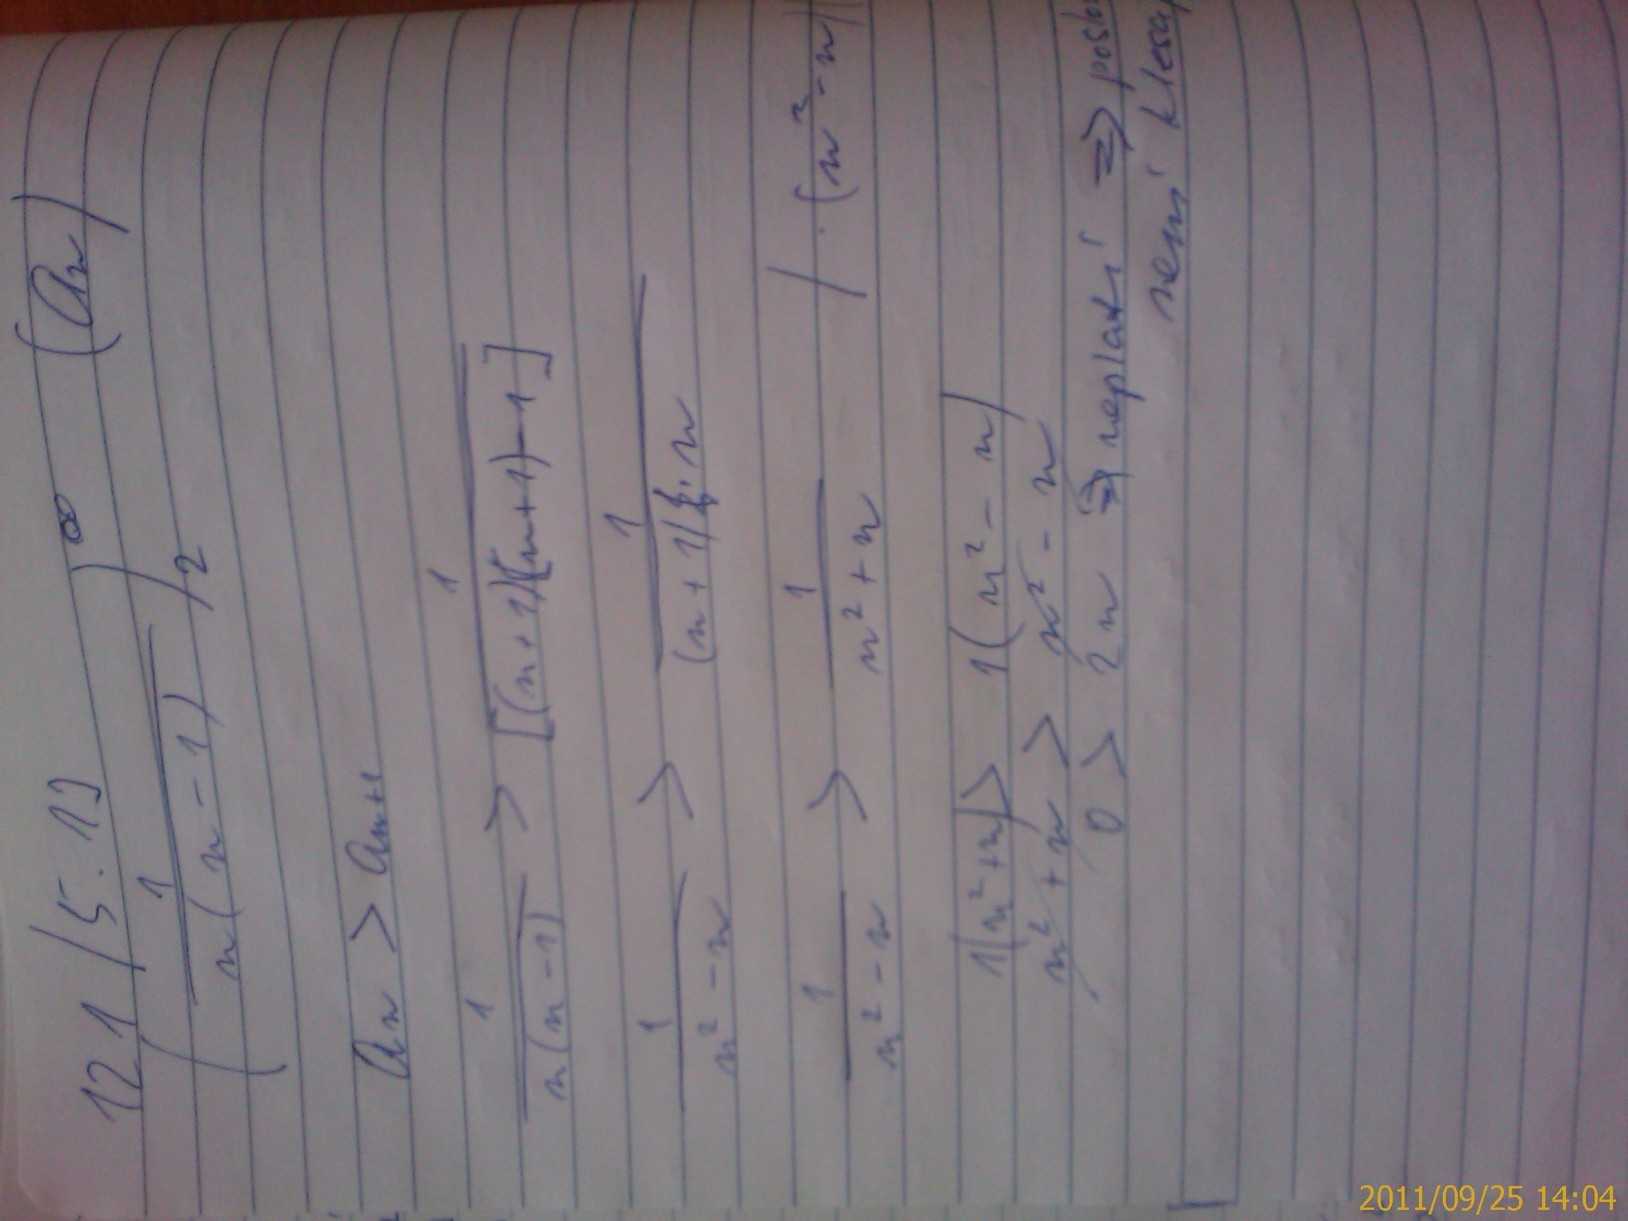 121/5.1)
( 1 / n(n-1) )₂^∞ (an)
an > an+1
1 / n(n-1) > 1 / [(n+1)(n+1)-1]
1 / n²-n > 1 / (n+1)·n
1 / n²-n > 1 / n²+n / ·(n²-n)
1(n²+n) > 1(n²-n)
n²+n > n²-n
0 > 2n ⇒ neplatí ⇒
není
2011/09/25 14:04